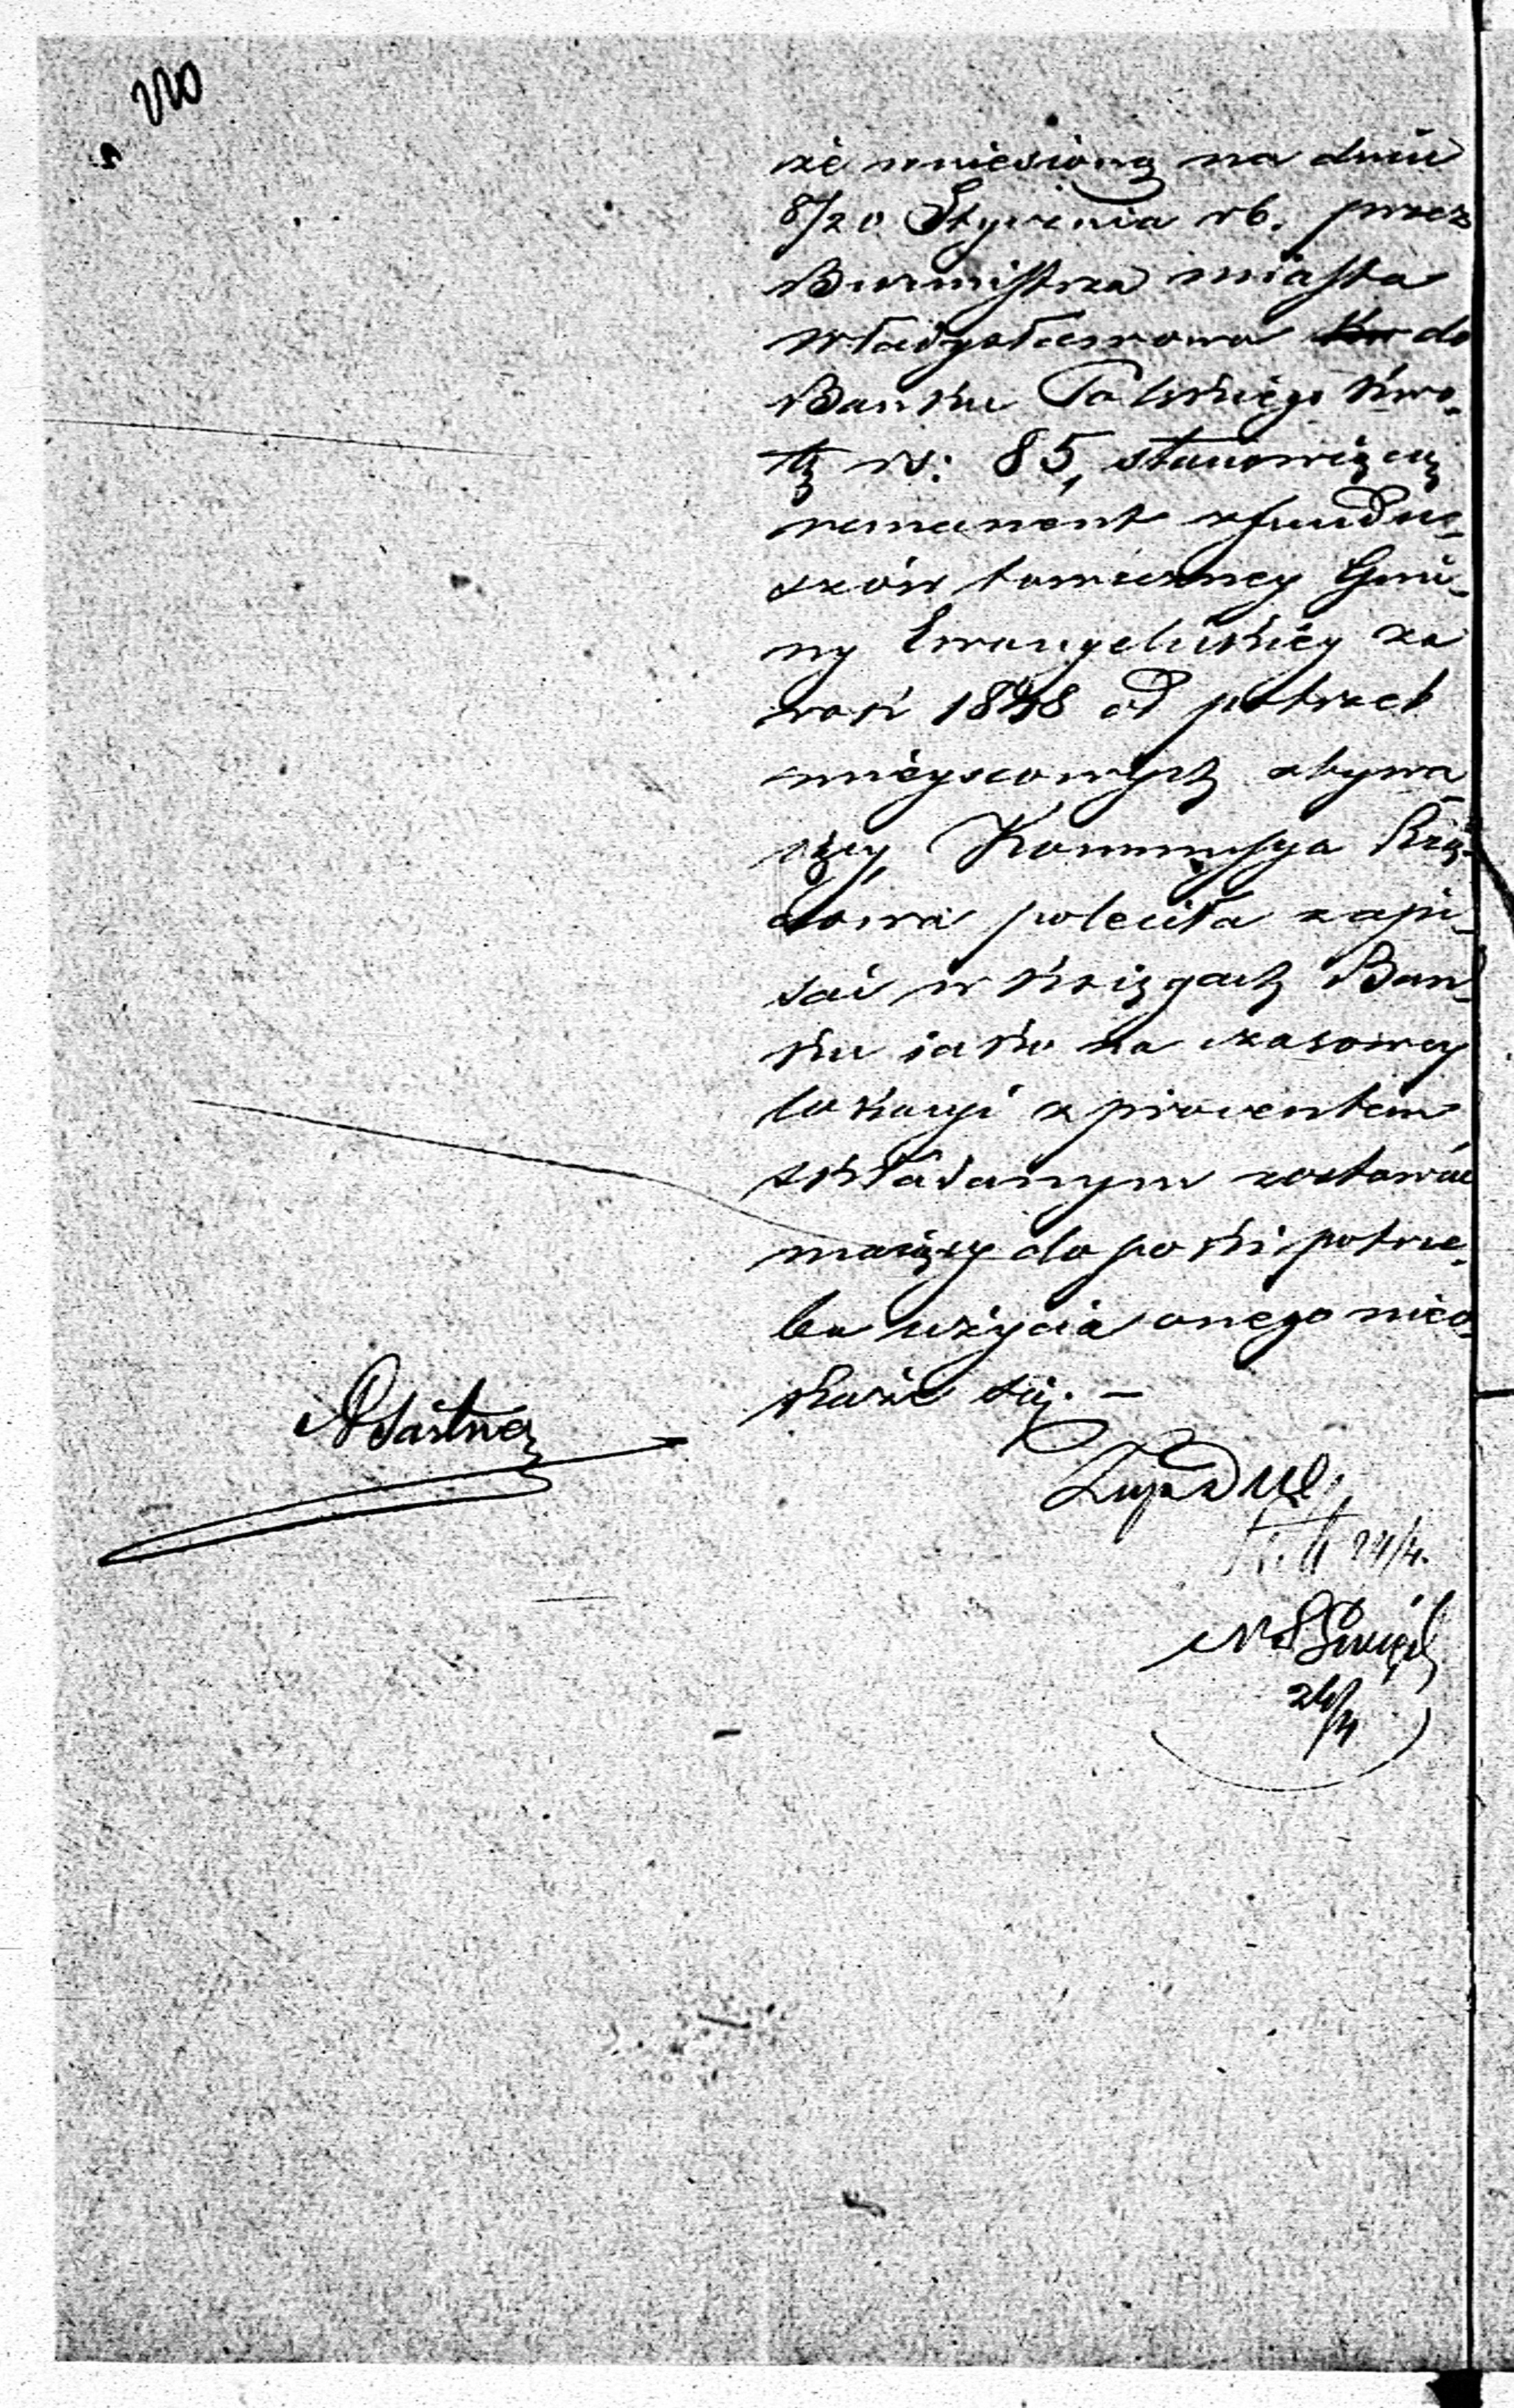 że wniesioną na dniu
8/20 Stycznia rb. przez
Burmistrza miasta
Władysławowa do
Banku Polskiego kwo-
tę rs: 85, stanowiącą
remanent z fundu-
szów tamecznej Gmi-
ny Ewangelickiej za
rok 1848 od potrzeb
miejscowych zbywa-
jący, Kommissya Rzą-
dowa poleciła zapi-
sać w księgach Ban-
ku jako na czasowey
lokacyi z procentem
składanym zostawać
mający dopóki potrze-
ba użycia onego nieo-
każe się. —
24/4